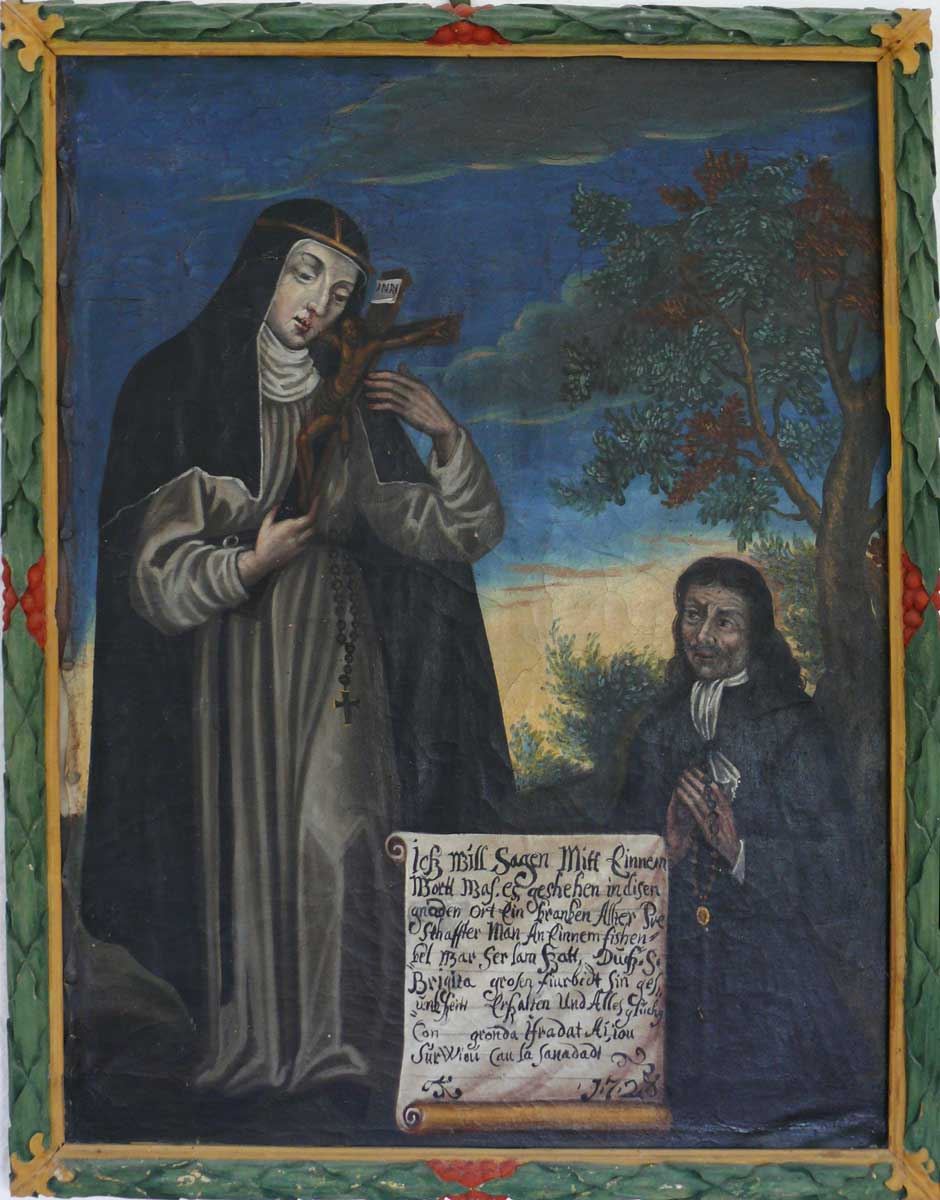 INRI
ich will Sagen Mitt Einnem
Wortt Was es geshehen in disen
gnaden ort Ein kranken Alher
schaffter Man An Einnem fishen=
bel War Ser lam hatt, Duch S.
Brigita grosen fiurbedt Sin ges
undtheit Erhalten Und Alles glückh
Con gronda
Sur la sanadad
1728